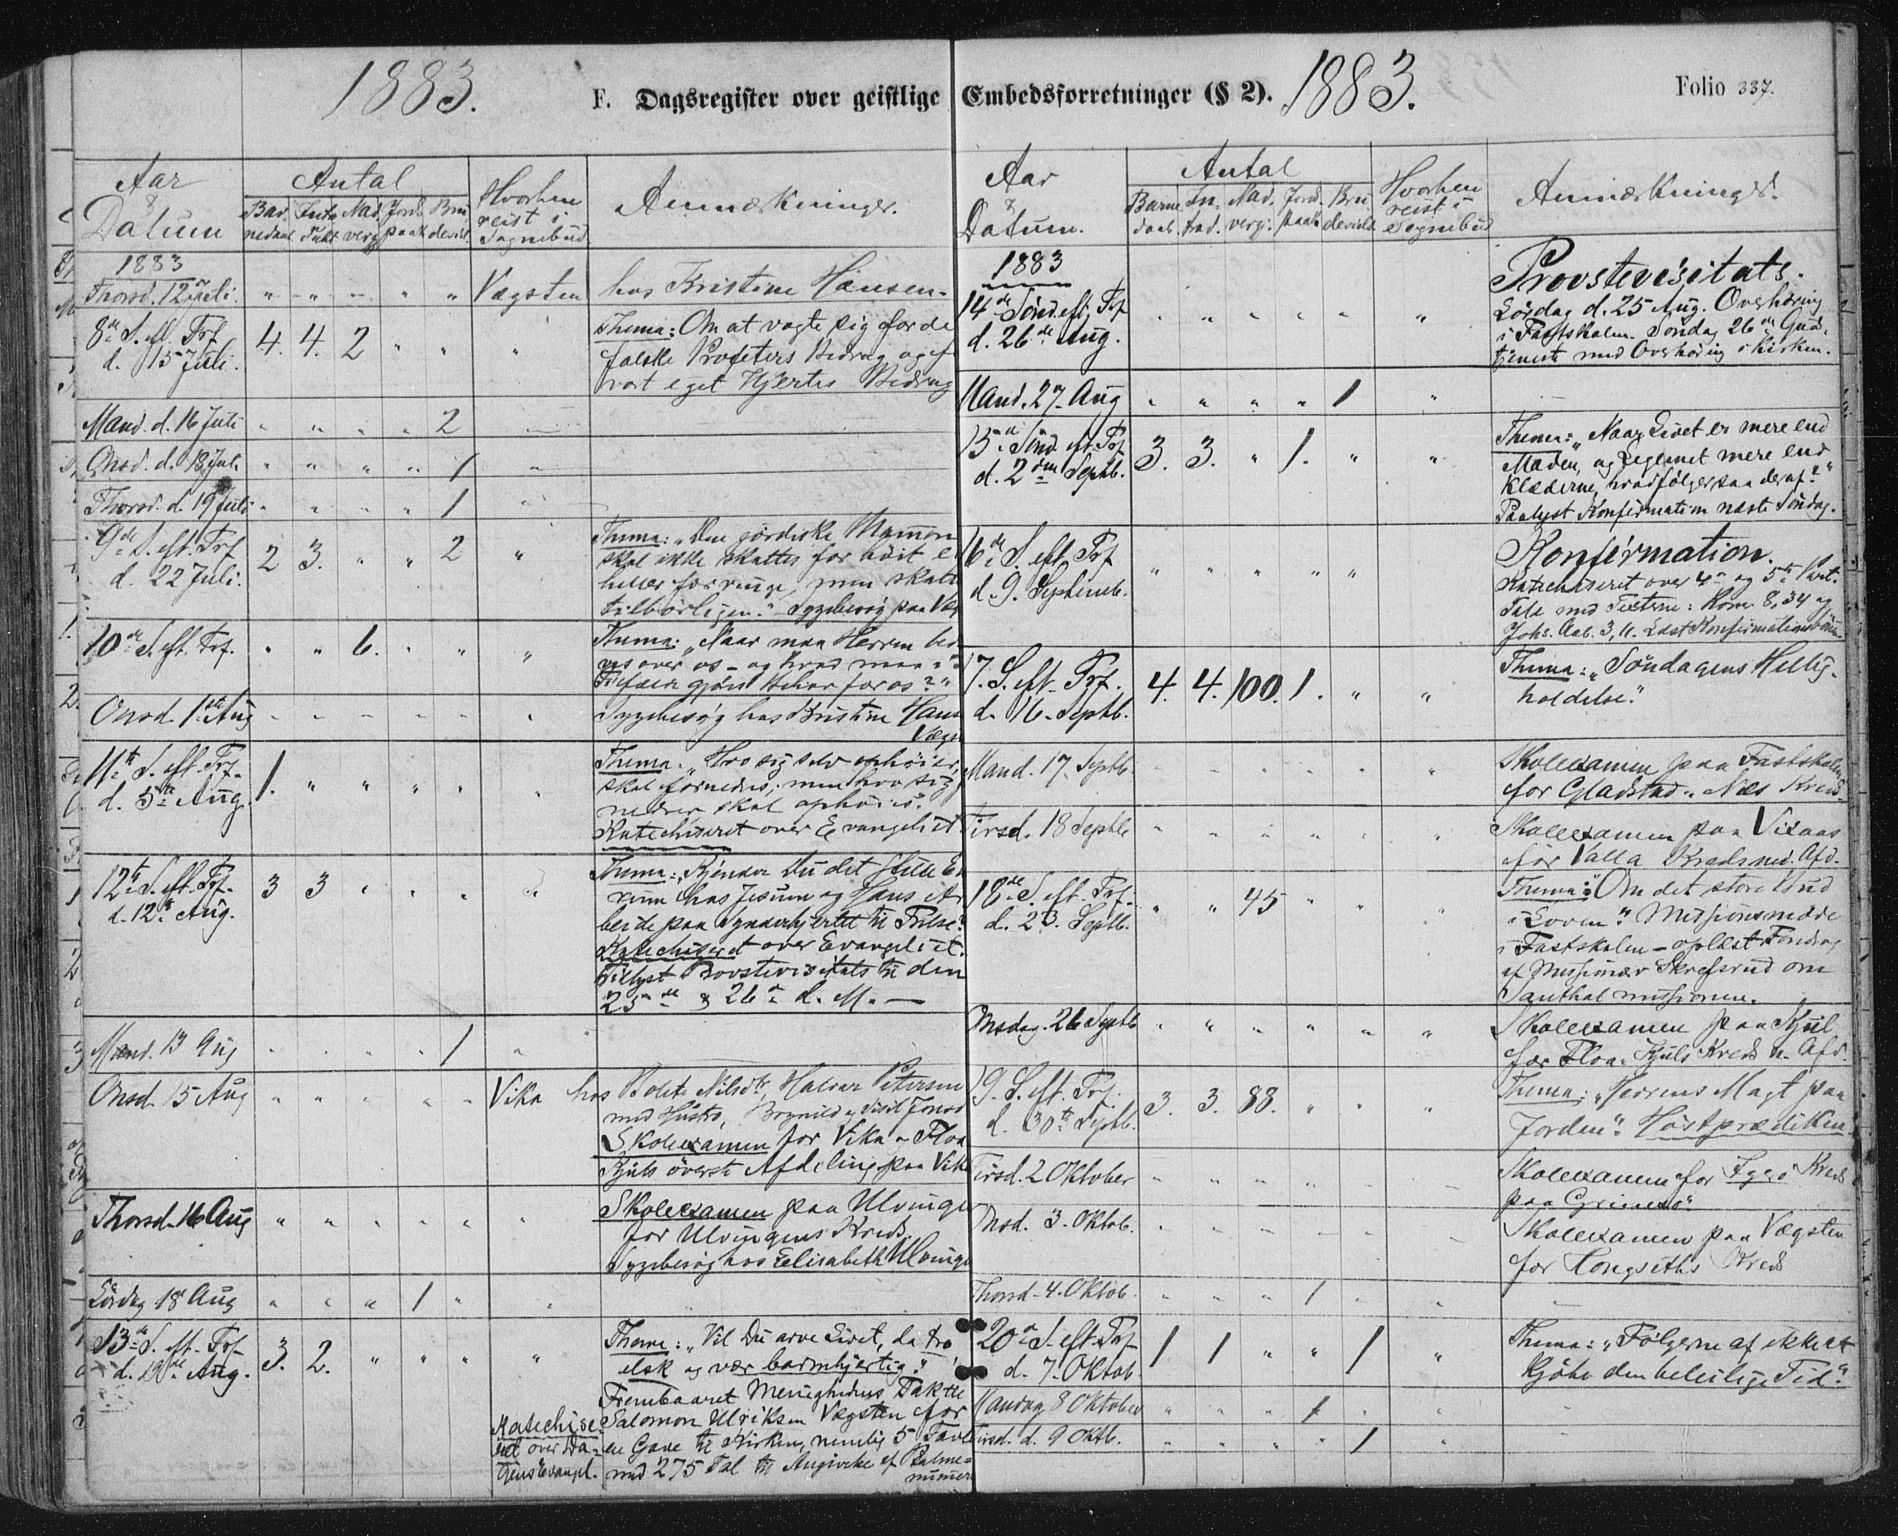 1883.
F. Dagsregister over geistlige
Aar
&
Datum
Antal
Bar-
nedaab
Intr
Takt
Nad
verg
Jords
paak
Bru
deviel
Hvorhen
reist i
Sognebud
Anmærkninger.
1883
Thorsd. 12 Juli. " " " " " Vægsten hos Kristine Hansen-
8de S. eft. Trf
d. 15 Juli.
4. 4. 2 " " "
Thema: Om at vogte sig for de
falske Profeters Bedrag og
vort eget Hjertes Bedrag
Mand. d. 16 Juli " " " " 2
Onsd. d. 18 Juli " " " " 1 "
Thorsd. d. 19 Juli " " " " 1 "
9de S. eft. Trf
d. 22 Juli.
2 3. " " 2 "
Thema: "Den jordiske Mammon
skal ikke skattes for høit
heller for ringe, men skatte
tilbørligen." Sygebesøg paa Væg
10de S. eft. Trf. " " 6. " " "
Thema: "Naar maa Herren
over os - og hvad maa
gjøre for os?"
Onsd. 1ste Aug " " " " " "
Sygebesøg hos Kristine Hans
Vægs
11te S. eft. Trf.
d. 5te Aug.
1. " " " " "
Thema: "Hvo sig selv ophøier,
skal fornedres; men hvo sig
nedrer skal ophøies."
Katechiseret over Evangeliet
12te S. eft. Trf.
d. 12te Aug.
3 3 " " " "
Thema: "Kjender Du det stille
rum hos Jesum og Hans
beide paa Synderhjertet til Frelse?
Katechiseret over Evangeliet.
Tillyst Provstevisitats til den
25de & 26de d. M. —
Mand. 13 Aug " " " " 1 "
Onsd. 15 Aug " " " " " Vika hos Bolete Nilsdtr, Halvar Petersen
med Hustro, Jonsd
Skolexamen for Vika - Floa
Kjuls överste Afdeling paa Vik
Thorsd. 16 Aug " " " " " "
Skolexamen paa Ulvinge
for Ulvingens Kreds.
Sygebesøg hos Elisabeth Ulvinge
Lördag 18 Aug " " " 1 " "
13de S. eft. Trf
d. 19de Aug.
3. 2. " " " "
Thema: "Vil Du arve Livet, da tro
elsk og vær barmhjertig."
Frembaaret Menighedens Takke
Salomon Ulriksen Vægsten for
en Gave til Kirken, nemlig 5 Tavle
med 275 Tal til Angivelse af Psalme=
nummer
Katechise-
ret over Da-
gens Evangl.
Embedsforretninger (§ 2).
1883.
Folio 337.
Aar
&
Datum.
Antal
Barne
daab.
In-
trad.
Nad-
verg:
Jord.
paak
Bru
deviels
Hvorhen
reist i
Sognebud
Anmærkninger.
1883
14de Sönd. eft. Trf
d. 26de Aug.
" " " " " "
Provstevisitats.
Lördag d. 25 Aug. Overhöring
i Fastskolen. Söndag 26de Gud-
tjeneste med Overhöring i Kirken.
Mand. 27. Aug " " " " 1 "
15de Sönd. eft. Trf
d. 2den Septb.
3. 3. " 1. " "
Thema: "Naar Livet er mere end
Maden, og Legemet mere end
Klæderne, hvad følger saa deraf?"
Paalyst Konfirmation næste Söndag.
16de S. eft. Trf
d. 9. Septemb.
" " " " " "
Konfirmation.
Katechiseret over 4de og 5te Part.
Tale med Texterne: Rom. 8,34 og
Johs. Aab. 3,11.
17. S. eft. Trf.
d. 16. Septb.
4. 4. 100. 1. " "
Thema: "Søndagens Hellig-
holdelse."
Mand. 17. Septb. " " " " " "
Skolexamen paa Fastskolen
for Gladstad - Næs Kreds.
Tirsd. 18 Septb " " " " " "
Skolexamen paa Visaas
for Valla Kreds ned. Afd.
18de S. eft. Trf.
d. 23. Septb.
" " 45 " " "
Thema: "Om det store Bud
i Loven." Missionsmøde
i Fastskolen - oplæst Foredrag
af Missionær Skrefsrud om
Santhalmissionen.
Onsdag. 26 Septb " " " " " "
Skolexamen paa Kjul
for Floa - Kjuls Kreds n. Afd.
19. S. eft. Trf.
d. 30te Septb.
3. 3. 88. " " "
Thema: "Herrens Magt paa
Jorden". Höstprædiken
Tirsd. 2 Oktober " " " " " "
Skolexamen for Kreds
paa
Onsd. 3. Oktob. " " " " " "
Skolexamen paa Vægsten
for Kongseths Kreds
Thorsd. 4. Oktob. " " " 1 " "
20de S. eft. Trf
d. 7. Oktob.
1 1 " " 1 "
Thema: "Følgerne af ikke at
kjöbe den beleilige Tid."
Mandag 8 Oktober " " " 1 " "
Tirsd. d. 9 Oktb. " " " " 1 "